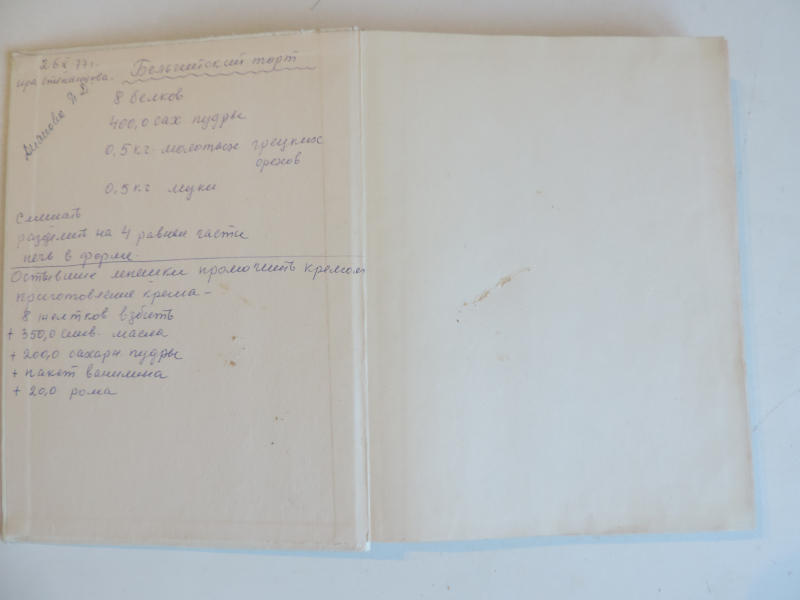 Бельгийский торт
8 белков
400,0 сах. пудры
0,5 кг молотых грецких
орехов
0,5 кг муки
Смешать
разделить на 4 равные части
печь в форме.
Остывшие лепешки промочить кремом
приготовление крема –
8 желтков взбить
+ 350,0 слив. масла
+ 200,0 сахарн пудры
+ пакет ванилина
+ 20,0 рома